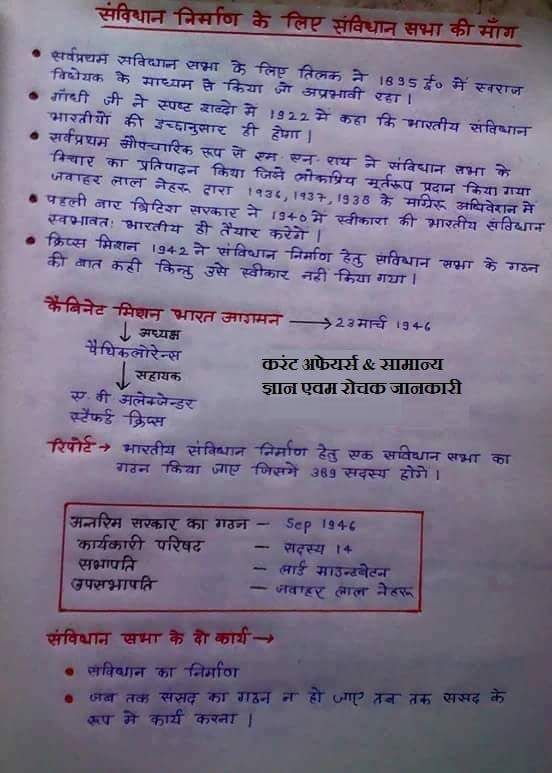 संविधान निर्माण के लिए संविधान सभा की माँग
• सर्वप्रथम संविधान सभा के लिए तिलक ने 1895 ई० में स्वराज
विधेयक के माध्यम से किया जो अप्रभावी रहा।
• गाँधी जी ने स्पष्ट शब्दो में 1922 में कहा कि भारतीय संविधान
भारतीयों की इच्छानुसार ही होगा।
• सर्वप्रथम औपचारिक रूप से एम. एन. राय ने संविधान सभा के
विचार का प्रतिपादन किया जिसे लोकप्रिय मूर्तरूप प्रदान किया गया
जवाहर लाल नेहरू द्वारा 1936, 1937, 1938 के अधिवेशन में
• पहली बार ब्रिटिश सरकार ने 1940 में स्वीकारा की भारतीय संविधान
स्वभावतः भारतीय ही तैयार करेंगे।
• क्रिप्स मिशन 1942 ने संविधान निर्माण हेतु संविधान सभा के गठन
की बात कही किन्तु उसे स्वीकार नहीं किया गया।
कैबिनेट मिशन भारत आगमन → 23 मार्च 1946
↓ अध्यक्ष
पैथिकलोरेन्स
↓ सहायक
ए. वी अलेक्जेन्डर
स्टैफर्ड क्रिप्स
करंट अफेयर्स & सामान्य
ज्ञान एवम रोचक जानकारी
रिपोर्ट → भारतीय संविधान निर्माण हेतु एक संविधान सभा का
गठन किया जाए जिसमें 389 सदस्य होंगे।
अन्तरिम सरकार का गठन – Sep 1946
कार्यकारी परिषद – सदस्य 14
सभापति – लार्ड माउन्टबेटन
उपसभापति – जवाहर लाल नेहरू
संविधान सभा के दो कार्य →
• संविधान का निर्माण
• जब तक संसद का गठन न हो जाए तब तक संसद के
रूप में कार्य करना।